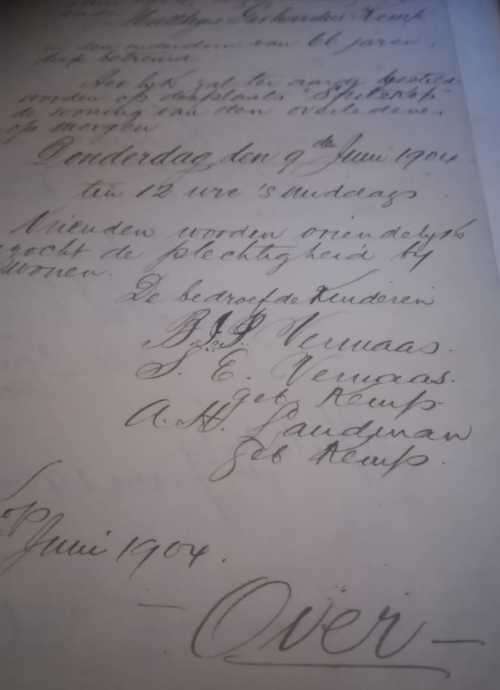 Matthys Gerhardus Kemp
in den ouderdom van 66 jaren,
diep betreurd.
Het lijk zal ter aarde besteld
worden op de plaats "Spitzkop"
de woning van den overledene,
op morgen
Donderdag den 9de Juni 1904
ten 12 ure 's middags
Vrienden worden vriendelijk
zocht de plechtigheid by
wonen.
De bedroefde Kinderen
Vermaas.
S. E. Vermaas.
geb Kemp
A. H. Landman
geb Kemp.
op
Juni 1904.
- Over -